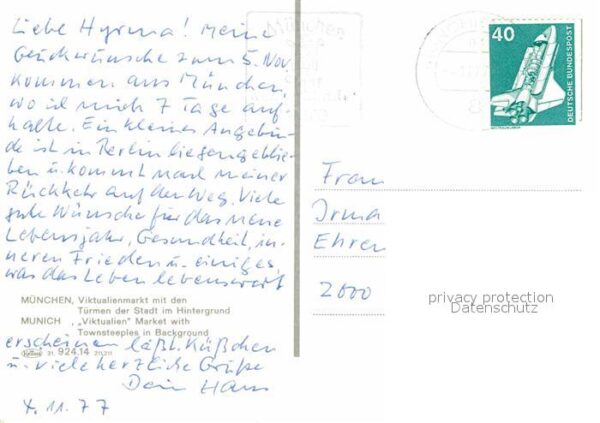 Liebe Hyrma! Meine
Glückwünsche zum 5. Nov.
kommen aus München,
wo ich mich 7 Tage auf-
halte. Ein kleines Angebin-
de ist in Berlin liegengeblie-
ben u. kommt nach meiner
Rückkehr auf den Weg. Viele
gute Wünsche für das neue
Lebensjahr, Gesundheit, in-
neren Frieden u. einiges,
was das Leben lebenswert
MÜNCHEN, Viktualienmarkt mit den
Türmen der Stadt im Hintergrund
MUNICH, „Viktualien" Market with
Townsteeples in Background
31. 924.14
erscheinen läßt. Küßchen
u. viele herzliche Grüße
Dein Hans
X. 11. 77
München
40
DEUTSCHE BUNDESPOST
Frau
Irma
Ehren
2000
privacy protection
Datenschutz